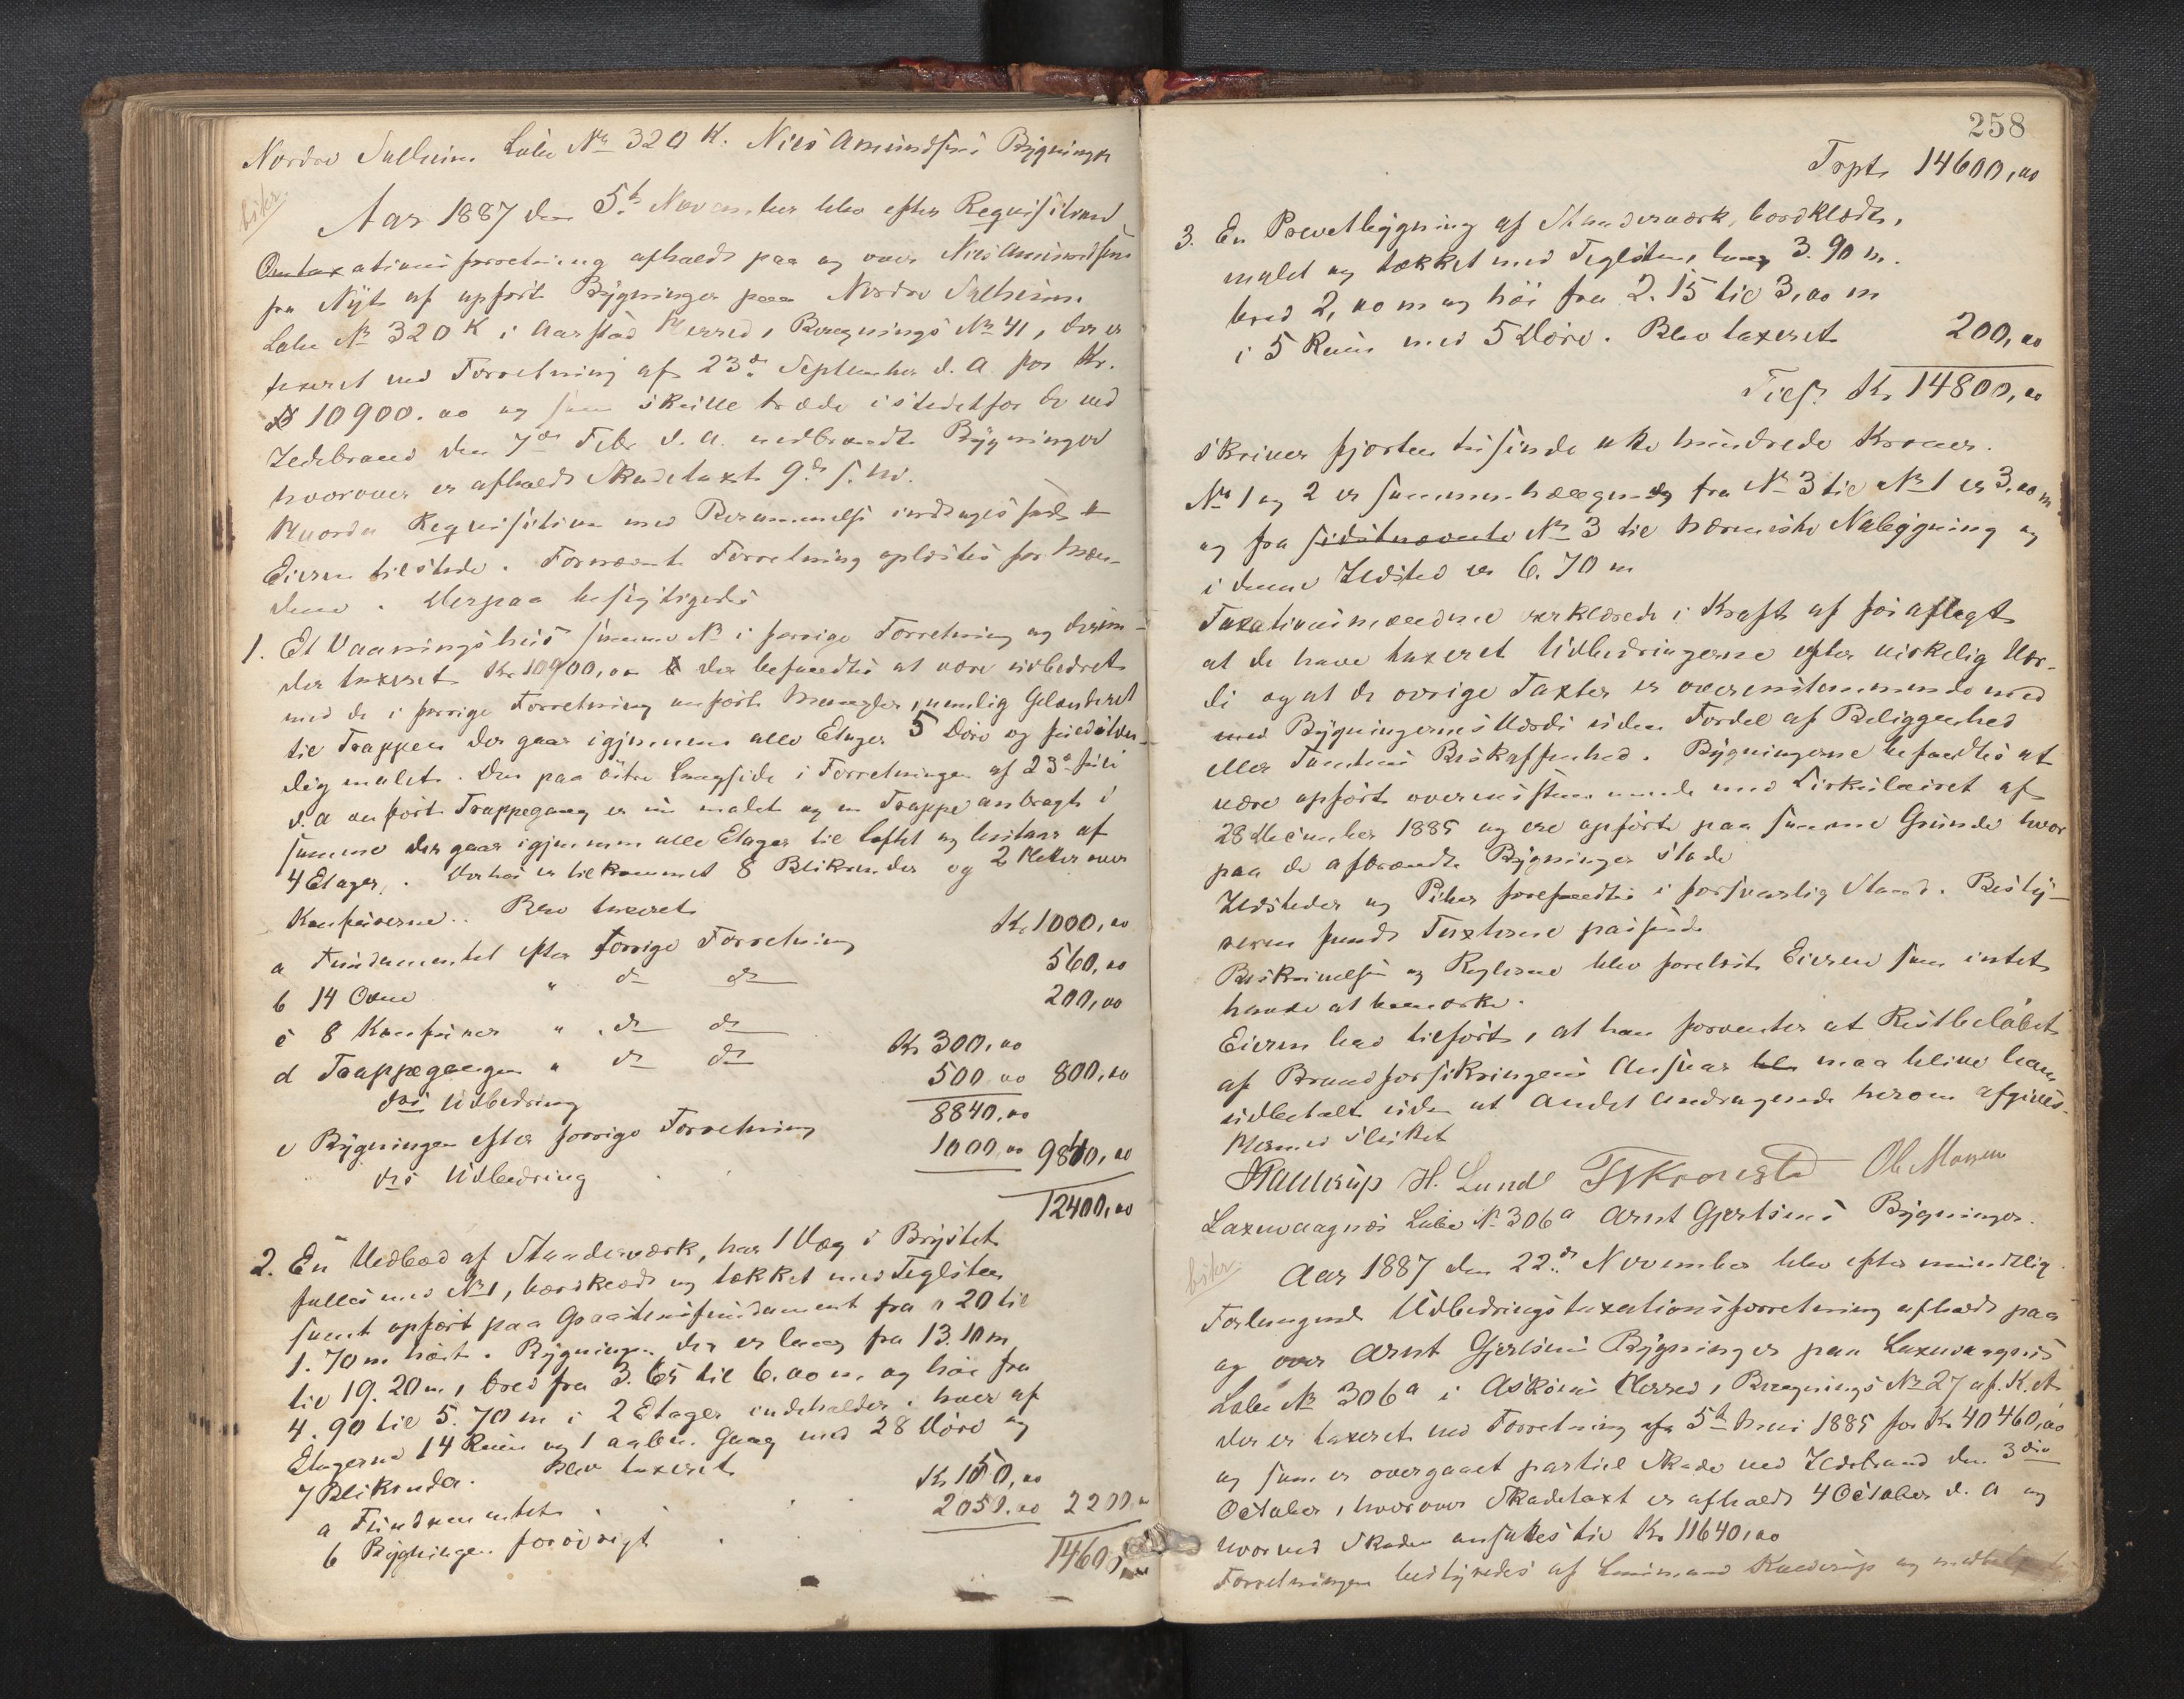 Nordre Solheim Løbe No 320 K. Niels Amundsens Bygninger
bskr.
Aar 1887 den 5te November blev efter Requisition
Omtaxationsforretning afholdt paa og over Niels Amundsens
fra Nyt af opført Bygninger paa Nordre Solheim
Løbe No 320 K i Aarstad Herred, Beregnings No 41, der er
taxeret ved Forretning af 23de September d. A. for Kr.
10900.00 og som skulle træde istedetfor de ved
Ildebrand den 7de Febr d. A. nedbrændte Bygninger
hvorover er afholdt Skadetaxt 9de s. M.
Hvorda Requisition med Berammelse indtages
Eieren tilstede. Fornævnt Forretning oplæstes for Mæn-
dene. Derpaa besigtigedes
1. Et Vaaningshus samme No i forrige Forretning og derun-
der taxeret Kr 10900,00 der befandtes at være udbedret
med de i forrige Forretning anførte Mangler, nemlig Gelænderet
til Trappen der gaar igjennem alle Etager 5 Døre og fuldstæn-
dig malet. Den paa østre Langside i Forretningen af 23de Juli
d. A anført Trappegang er nu malet og en Trappe anbragt i
samme der gaar igjennem alle Etager til loftet og bestaar af
4 Etager. Derhos er tilkommet 8 Blikrender og 2 Heller over
Komfurerne. Blev taxeret
a Fundamentet efter forrige Forretning Kr 1000,00
b 14 Ovne " do do 560,00
c 8 Komfurer " do do 200,00
d Trappegangen " do do Kr 300,00
dens Udbedring 500,00 800,00
e Bygningen efter forrige Forretning 8840,00
dens Udbedring 1000,00 9840,00
12400,00
2. En Vedbod af Standerværk, har 1 Væg i Brystet
fælles med No 1, bordklædt og tækket med Teglsten
samt opført paa Graastensfundament fra 0 20 til
1.70 m høit. Bygningen der er lang fra 13.10 m
til 19.20 m, bred fra 3.65 til 6.00 m og høi fra
4.90 til 5.70 m i 2 Etager indeholder i hver af
Etagerne 14 Rum og 1 aaben Gang med 28 Døre og
7 Blikrender. Blev taxeret
a Fundamentet Kr 150,00
b Bygningen forøvrigt 2050,00 2200,00
14600,00
258
Tspt. 14600,00
3. En Privetbygning af Standerværk, bordklædt,
malet og tækket med Teglsten, lang 3.90 m.
bred 2,00 m og høi fra 2.15 til 3,00 m
i 5 Rum med 5 Døre. Blev taxeret 200,00
Tils. Kr 14800,00
skriver fjorten tusinde otte hundrede Kroner.
No 1 og 2 er sammenhængende fra No 3 til No 1 er 3.00 m
og fra sidstnævnte No 3 til nærmeste Nabobygning og
i denne Ildsted er 6.70 m
Taxationsmændene erklærede i Kraft af før aflagt
at de have taxeret Udbedringerne efter virkelig Vær-
di og at de øvrige Taxter er overensstemmende med
med Bygningernes Værdi uden Fordel af Beliggenhed
eller Tomtens Beskaffenhed. Bygningerne befandtes at
være opført overensstemmende med Cirkulairet af
28 December 1885 og ere opførte paa samme Grunde hvor
paa de afbrændte Bygninger stode
Ildsteder og Piber forefandtes i forsvarlig Stand. Besty-
reren fandt Taxterne passende
Beskrivelsen og Reglerne blev forelæst Eieren som intet
havde at bemærke.
Eieren lod tilføre, at han forventer at Restbeløbet
af Brandforsikringens Ansvar maa blive ham
udbetalt uden at Andet Andragende herom afgives.
Hermed sluttet
Kaldrup H. Lund T Kronstad Ole Monsen
Laxevaagnæs Løbe No 306a Arnt Gjertsens Bygninger.
bskr.
Aar 1887 den 22de November blev efter mundtlig
Forlangende Udbedringstaxationsforretning afholdt paa
og over Arnt Gjertsens Bygninger paa Laxevaagnæs
Løbe No 306a i Askøens Herred, Beregnings No 27 af. K. et
der er taxeret ved Forretning af 5te Mai 1885 for Kr 40460,00
og som er overgaaet partiel Skade ved Ildebrand den 3die
October, hvorover Skadetaxt er afholdt 4 October d. A og
hvorved Skaden ansattes til Kr 11640,00
Forretningen bestyredes af Lensmand Kaldrup og